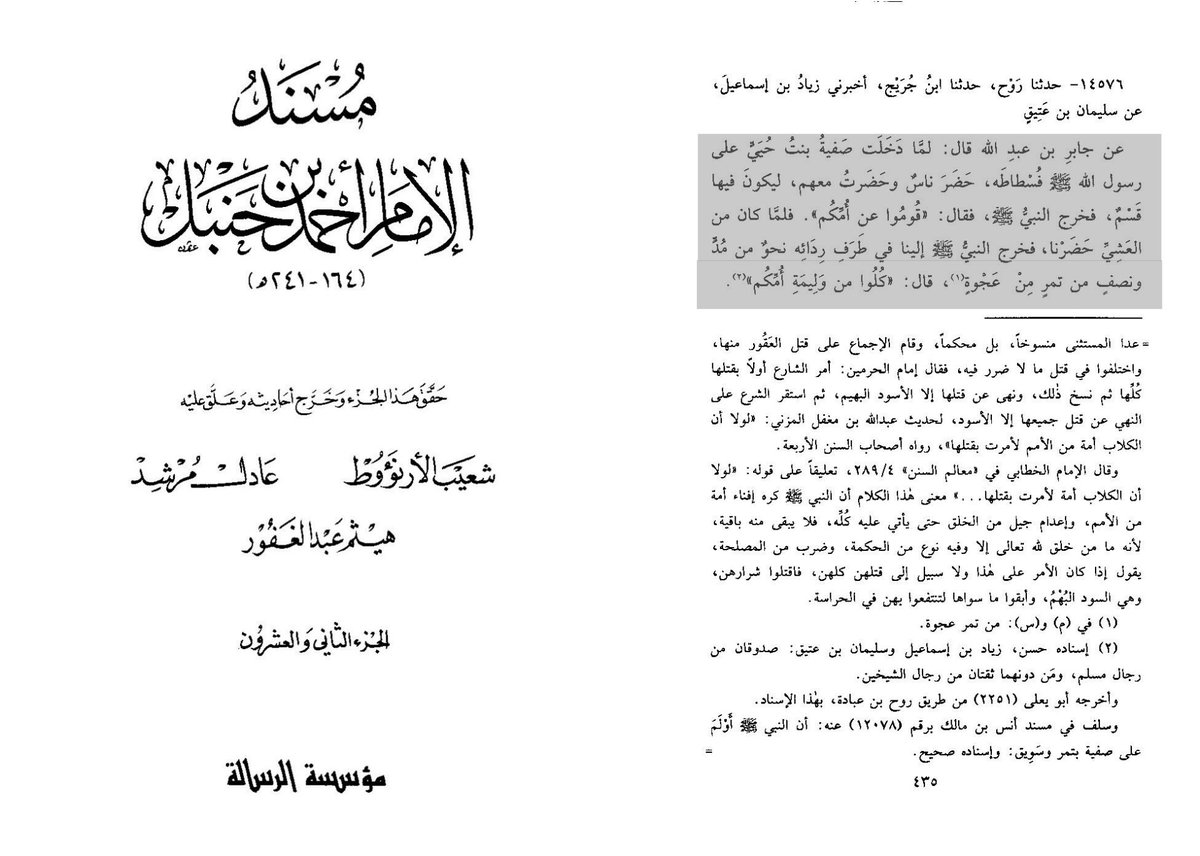 مُسْنَدُ
الإِمَامِ أَحْمَدَ بْنِ حَنْبَلٍ
(١٦٤-٢٤١ه)
حَقَّقَ هَذَا الجُزْءَ وَخَرَّجَ أحَادِيثَه وَعَلَّقَ عَلَيْه
شعَيْبَ الأرنَؤُوط عَادل مُرْشِد
هَيْثم عَبْد الغَفُور
الجُزْءُ الثَّاني وَالعِشْرُون
مؤسسة الرسالة
١٤٥٧٦- حدثنا رَوْح، حدثنا ابنُ جُرَيْج، أخبرني زيادُ بن إسماعيلَ،
عن سليمان بن عَتِيقٍ
عن جابرِ بن عبدِ الله قال: لمَّا دَخَلَت صَفيةُ بنتُ حُيَيٍّ على
رسول الله ﷺ فُسْطاطَه، حَضَرَ ناسٌ وحَضَرتُ معهم، ليكونَ فيها
قَسْمٌ، فخرج النبيُّ ﷺ، فقال: «قُومُوا عن أُمِّكُم». فلمَّا كان من
العَشِيِّ حَضَرْنا، فخرج النبيُّ ﷺ إلينا في طَرَفِ رِدَائِه نحوٌ من مُدٍّ
ونصفٍ من تمرٍ مِنْ عَجْوةٍ(١)، قال: «كُلُوا من وَلِيمَةِ أُمِّكُم»(٢).
= عدا المستثنى منسوخاً، بل محكماً، وقام الإجماع على قتل العَقُور منها،
واختلفوا في قتل ما لا ضرر فيه، فقال إمام الحرمين: أمر الشارع أولاً بقتلها
كُلِّها ثم نسخ ذٰلك، ونهى عن قتلها إلا الأسود البهيم، ثم استقر الشرع على
النهي عن قتل جميعها إلا الأسود، لحديث عبدالله بن مغفل المزني: «لولا أن
الكلاب أمة من الأمم لأمرت بقتلها»، رواه أصحاب السنن الأربعة.
وقال الإمام الخطابي في «معالم السنن» ٢٨٩/٤، تعليقاً على قوله: «لولا
أن الكلاب أمة لأمرت بقتلها...» معنى هٰذا الكلام أن النبي ﷺ كره إفناء أمة
من الأمم، وإعدام جيل من الخلق حتى يأتي عليه كُلِّه، فلا يبقى منه باقية،
لأنه ما من خلق لله تعالى إلا وفيه نوع من الحكمة، وضرب من المصلحة،
يقول إذا كان الأمر على هٰذا ولا سبيل إلى قتلهن كلهن، فاقتلوا شرارهن،
وهي السود البُهْمُ، وأبقوا ما سواها لتنتفعوا بهن في الحراسة.
(١) في (م) و(س): من تمر عجوة.
(٢) إسناده حسن، زياد بن إسماعيل وسليمان بن عتيق: صدوقان من
رجال مسلم، ومَن دونهما ثقتان من رجال الشيخين.
وأخرجه أبو يعلى (٢٢٥١) من طريق روح بن عبادة، بهٰذا الإسناد.
وسلف في مسند أنس بن مالك برقم (١٢٠٧٨) عنه: أن النبي ﷺ أَوْلَمَ
على صفية بتمر وسَوِيق: وإسناده صحيح. =
٤٣٥